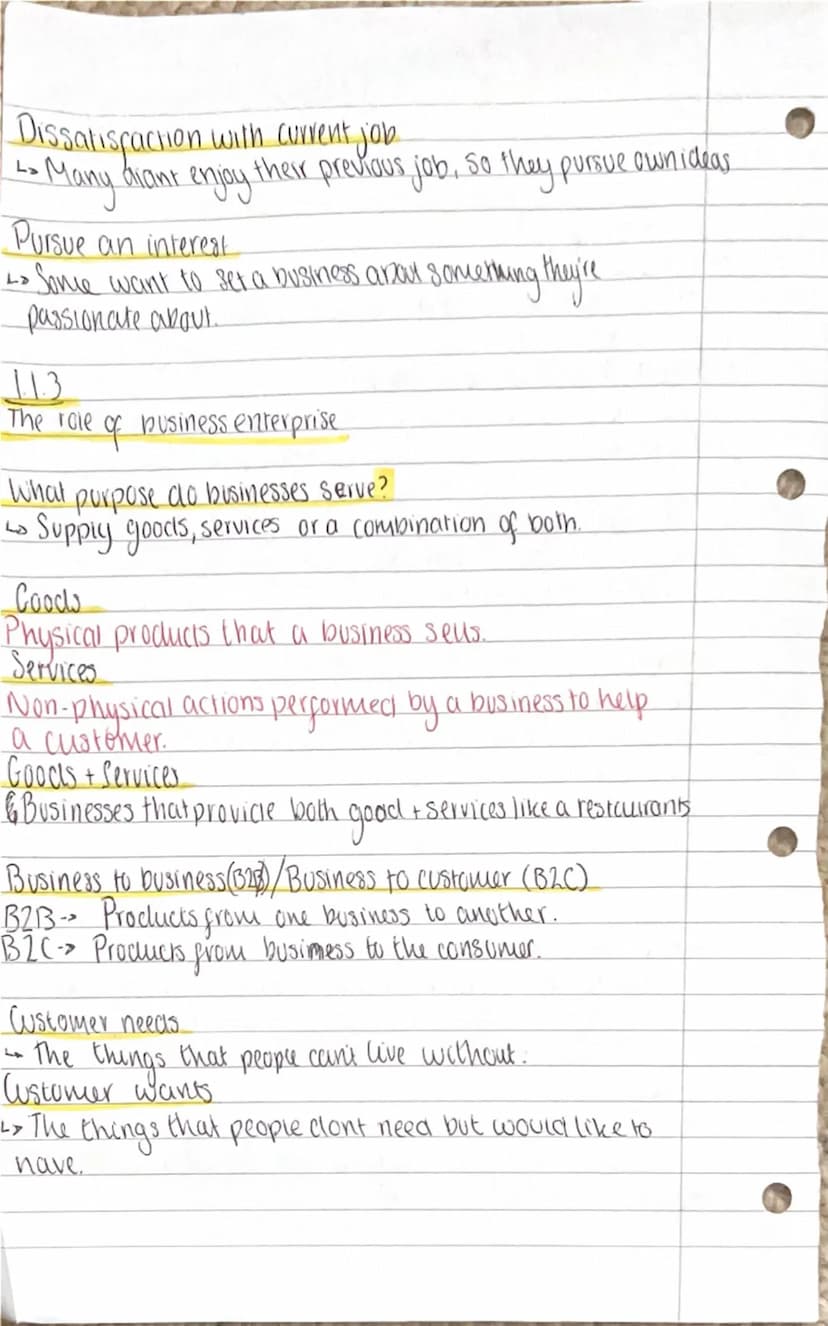 Dissatisfaction with current job
↳ Many didnt enjoy their previous job, so they pursue own ideas
Pursue an interest
↳ Some want to set a business about something they're
passionate about.
1.1.3
The role of business enterprise
What purpose do businesses serve?
↳ Supply goods, services or a combination of both.
Goods
Physical products that a business sells.
Services
Non-physical actions performed by a business to help
a customer.
Goods + Services
↳ Businesses that provide both good + services like a restaurants
Business to business (B2B) / Business to customer (B2C)
B2B -> Products from one business to another.
B2C -> Products from business to the consumer.
Customer needs
↳ The things that people can't live without.
Customer wants
↳ The things that people dont need but would like to
have.